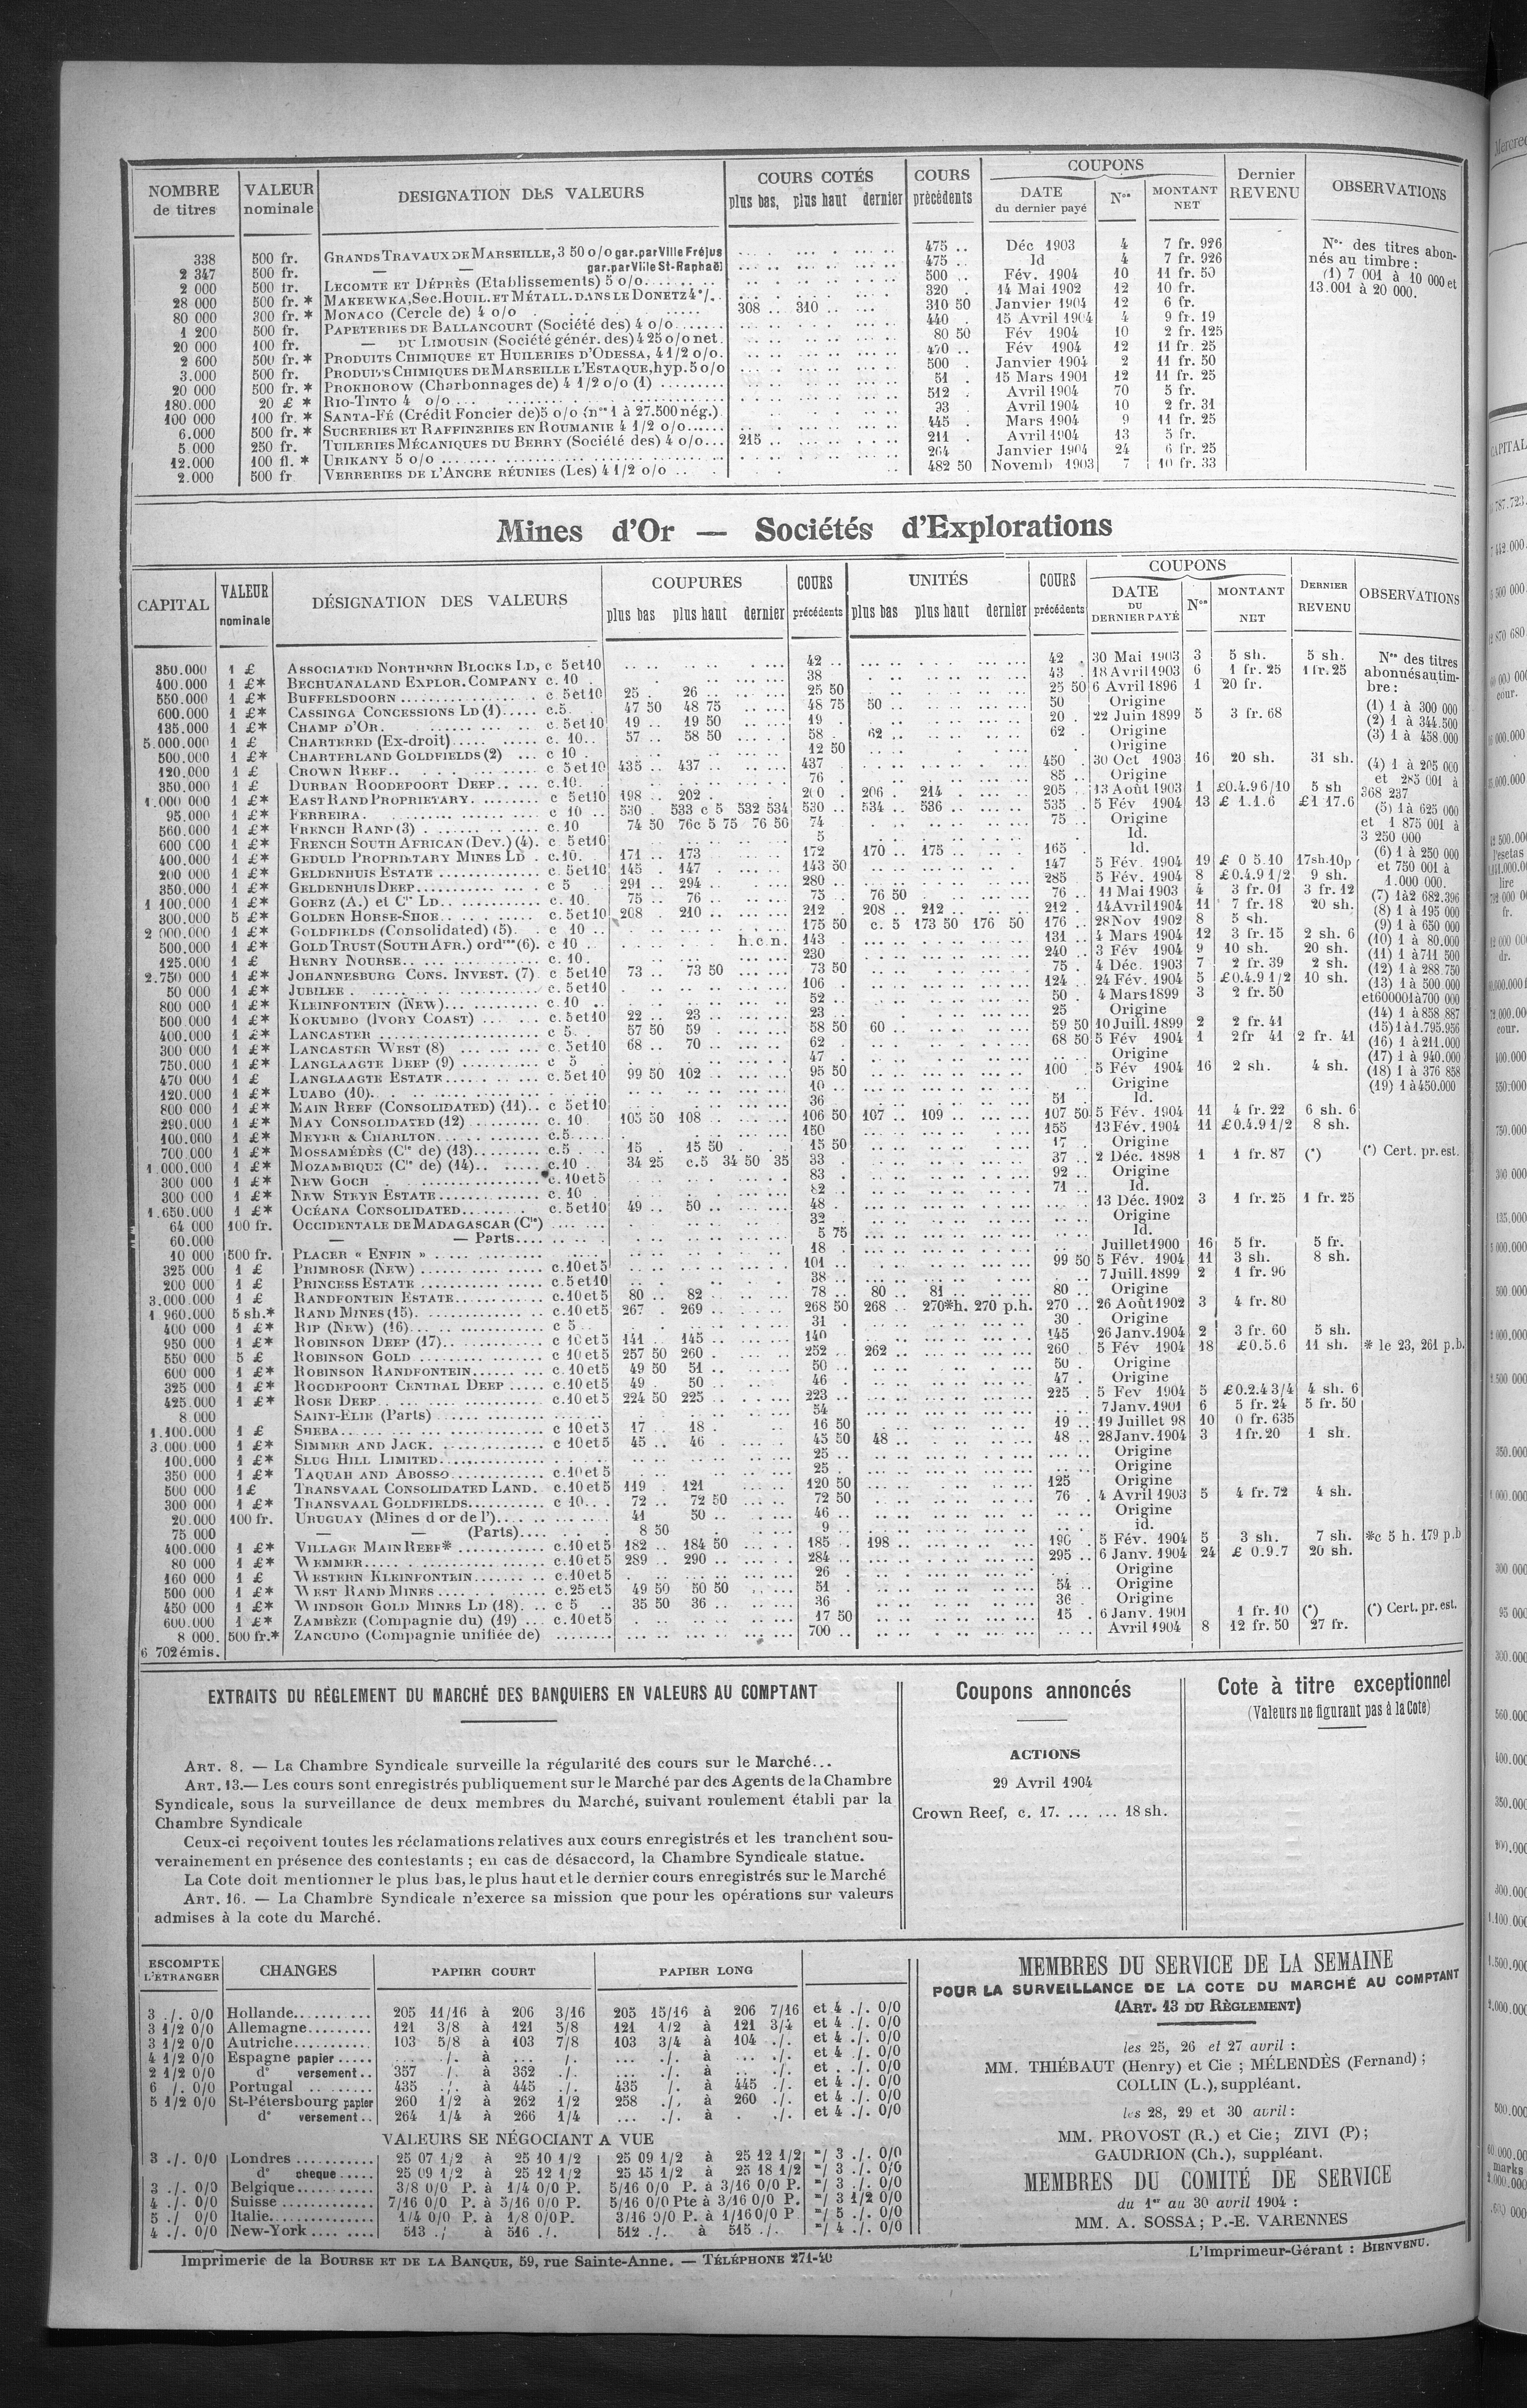 NOMBRE de titres | VALEUR nominale | DESIGNATION DES VALEURS | COURS COTÉS plus bas, plus haut dernier | COURS précédents | COUPONS DATE du dernier payé | Nos | MONTANT NET | Dernier REVENU | OBSERVATIONS
338 500 fr. GRANDS TRAVAUX DE MARSEILLE, 3 50 o/o gar. par Ville Fréjus 475 .. Déc 1903 4 7 fr. 926
2 347 500 fr. — — gar. par Ville St-Raphaël 475 .. Id 4 7 fr. 926
2 000 500 fr. LECOMTE ET DÉPRÈS (Etablissements) 5 o/o 500 .. Fév. 1904 10 11 fr. 50
28 000 500 fr. * MAKEEWKA, Soc. HOUIL. ET MÉTALL. DANS LE DONETZ 4 °/. 320 . 14 Mai 1902 12 10 fr.
80 000 300 fr. * MONACO (Cercle de) 4 o/o 308 .. 310 .. 310 50 Janvier 1904 12 6 fr.
1 200 500 fr. PAPETERIES DE BALLANCOURT (Société des) 4 o/o 440 . 15 Avril 1904 4 9 fr. 19
20 000 100 fr. — DU LIMOUSIN (Société génér. des) 4 25 o/o net. 80 50 Fév 1904 10 2 fr. 125
2 600 500 fr. * PRODUITS CHIMIQUES ET HUILERIES D'ODESSA, 4 1/2 o/o. 470 .. Fév 1904 12 11 fr. 25
3.000 500 fr. PRODUITS CHIMIQUES DE MARSEILLE L'ESTAQUE, hyp. 5 o/o 500 . Janvier 1904 2 11 fr. 50
20 000 500 fr. * PROKHOROW (Charbonnages de) 4 1/2 o/o (1) 51 . 15 Mars 1901 12 11 fr. 25
180.000 20 £ * RIO-TINTO 4 o/o 512 . Avril 1904 70 5 fr.
100 000 100 fr. * SANTA-FÉ (Crédit Foncier de) 5 o/o (nos 1 à 27.500 nég.) 93 Avril 1904 10 2 fr. 31
6.000 500 fr. * SUCRERIES ET RAFFINERIES EN ROUMANIE 4 1/2 o/o 445 . Mars 1904 9 11 fr. 25
5 000 250 fr. TUILERIES MÉCANIQUES DU BERRY (Société des) 4 o/o 215 .. 211 . Avril 1904 13 5 fr.
12.000 100 fl. * URIKANY 5 o/o 264 Janvier 1904 24 6 fr. 25
2.000 500 fr VERRERIES DE L'ANCRE RÉUNIES (Les) 4 1/2 o/o 482 50 Novemb 1903 7 10 fr. 33
Nos des titres abonnés au timbre :
(1) 7 001 à 10 000 et
13.001 à 20 000.
Mines d'Or — Sociétés d'Explorations
CAPITAL | VALEUR nominale | DÉSIGNATION DES VALEURS | COUPURES plus bas plus haut dernier | COURS précédents | UNITÉS plus bas plus haut dernier | COURS précédents | COUPONS DATE DU DERNIER PAYÉ | Nos | MONTANT NET | DERNIER REVENU | OBSERVATIONS
350.000 1 £ ASSOCIATED NORTHERN BLOCKS LD, c 5 et 10 42 .. 42 . 30 Mai 1903 3 5 sh. 5 sh.
400.000 1 £* BECHUANALAND EXPLOR. COMPANY c. 10 38 43 . 18 Avril 1903 6 1 fr. 25 1 fr. 25
550.000 1 £* BUFFELSDOORN c. 5 et 10 25 . 26 .. 25 50 25 50 6 Avril 1896 1 20 fr.
600.000 1 £* CASSINGA CONCESSIONS LD (1) c. 5 47 50 48 75 48 75 50 .. 50 Origine
135.000 1 £* CHAMP D'OR c. 5 et 10 19 .. 19 50 19 . 20 . 22 Juin 1899 5 3 fr. 68
5.000.000 1 £ CHARTERED (Ex-droit) c. 10 57 .. 58 50 58 . 62 .. 62 . Origine
500.000 1 £* CHARTERLAND GOLDFIELDS (2) c 10 12 50 Origine
120.000 1 £ CROWN REEF c 5 et 10 435 .. 437 .. 437 450 . 30 Oct 1903 16 20 sh. 31 sh.
350.000 1 £ DURBAN ROODEPOORT DEEP c. 10 76 . 85 .. Origine
1.000 000 1 £* EAST RAND PROPRIETARY c 5 et 10 198 .. 202 . 200 . 206 . 214 . 205 .. 13 Août 1903 1 £0.4.9 6/10 5 sh
95.000 1 £* FERREIRA c 10 530 . 533 c 5 532 534 530 .. 534 .. 536 .. 535 .. 5 Fév 1904 13 £ 1.1.6 £1 17.6
560.000 1 £* FRENCH RAND (3) c. 10 74 50 76 c 5 75 76 50 74 75 .. Origine
600 000 1 £* FRENCH SOUTH AFRICAN (Dev.) (4). c 5 et 10 5 Id.
400.000 1 £* GEDULD PROPRIETARY MINES LD c. 10 171 .. 173 172 170 .. 175 .. 165 . Id.
200 000 1 £* GELDENHUIS ESTATE c. 5 et 10 145 . 147 . 143 50 147 5 Fév. 1904 19 £ 0 5.10 17sh.10p
350.000 1 £* GELDENHUIS DEEP c 5 291 .. 294 .. 280 .. 285 5 Fév. 1904 8 £0.4.9 1/2 9 sh.
1 100.000 1 £* GOERZ (A.) et Cie LD c. 10 75 .. 76 . 75 . 76 50 76 .. 11 Mai 1903 4 3 fr. 01 3 fr. 12
300.000 5 £* GOLDEN HORSE-SHOE c. 5 et 10 208 . 210 .. 212 . 208 .. 212 .. 212 . 14 Avril 1904 11 7 fr. 18 20 sh.
2 000.000 1 £* GOLDFIELDS (Consolidated) (5) c 10 175 50 c. 5 173 50 176 50 176 .. 28 Nov 1902 8 5 sh.
500.000 1 £* GOLD TRUST (SOUTH AFR.) ord res (6). c 10 h.c.n. 143 131 .. 4 Mars 1904 12 3 fr. 15 2 sh. 6
125.000 1 £ HENRY NOURSE c. 10 230 240 .. 3 Fév 1904 9 10 sh. 20 sh.
2.750 000 1 £* JOHANNESBURG CONS. INVEST. (7) c 5 et 10 73 .. 73 50 73 50 75 . 4 Déc. 1903 7 2 fr. 39 2 sh.
50 000 1 £* JUBILEE c. 5 et 10 106 . 124 .. 24 Fév. 1904 5 £0.4.9 1/2 10 sh.
800 000 1 £* KLEINFONTEIN (NEW) c. 10 52 .. 50 . 4 Mars 1899 3 2 fr. 50
500.000 1 £* KOKUMBO (IVORY COAST) c. 5 et 10 22 .. 23 .. 23 .. 25 Origine
400.000 1 £* LANCASTER c 5 57 50 59 . 58 50 60 .. 59 50 10 Juill. 1899 2 2 fr. 41
300 000 1 £* LANCASTER WEST (8) c. 5 et 10 68 .. 70 .. 62 68 50 5 Fév 1904 1 2 fr 41 2 fr. 41
750.000 1 £* LANGLAAGTE DEEP (9) c 5 47 . Origine
470 000 1 £ LANGLAAGTE ESTATE c. 5 et 10 99 50 102 .. 95 50 100 . 5 Fév 1904 16 2 sh. 4 sh.
120.000 1 £* LUABO (10) 10 .. Origine
800 000 1 £* MAIN REEF (CONSOLIDATED) (11) c 5 et 10 36 51 . Id.
290.000 1 £* MAY CONSOLIDATED (12) c. 10 105 50 108 .. 106 50 107 .. 109 .. 107 50 5 Fév. 1904 11 4 fr. 22 6 sh. 6
100.000 1 £* MEYER & CHARLTON c. 5 150 155 13 Fév. 1904 11 £0.4.9 1/2 8 sh.
700 000 1 £* MOSSAMÉDÈS (Cie de) (13) c. 5 15 . 15 50 15 50 17 . Origine
1.000.000 1 £* MOZAMBIQUE (Cie de) (14) c. 10 34 25 c.5 34 50 35 33 . 37 .. 2 Déc. 1898 1 1 fr. 87 (*) (*) Cert. pr. est.
300 000 1 £* NEW GOCH c. 10 et 5 83 . 92 .. Origine
300 000 1 £* NEW STEYN ESTATE c. 10 82 .. 71 . Id.
1.650.000 1 £* OCÉANA CONSOLIDATED c. 5 et 10 49 .. 50 .. 48 .. 13 Déc. 1902 3 1 fr. 25 1 fr. 25
64 000 100 fr. OCCIDENTALE DE MADAGASCAR (Cie) 32 . Origine
60.000 — — Parts 5 75 Id.
10 000 500 fr. PLACER « ENFIN » 18 .. Juillet 1900 16 5 fr. 5 fr.
325 000 1 £ PRIMROSE (NEW) c. 10 et 5 101 .. 99 50 5 Fév. 1904 11 3 sh. 8 sh.
200 000 1 £ PRINCESS ESTATE c. 5 et 10 38 .. 7 Juill. 1899 2 1 fr. 96
3.000.000 1 £ RANDFONTEIN ESTATE c. 10 et 5 80 .. 82 .. 78 .. 80 .. 81 .. 80 .. Origine
1 960.000 5 sh.* RAND MINES (15) c. 10 et 5 267 . 269 .. 268 50 268 .. 270*h. 270 p.h. 270 .. 26 Août 1902 3 4 fr. 80
400 000 1 £* RIP (NEW) (16) c 5 31 . 30 . Origine
950 000 1 £* ROBINSON DEEP (17) c 10 et 5 141 .. 145 .. 140 145 26 Janv. 1904 2 3 fr. 60 5 sh.
550 000 5 £ ROBINSON GOLD c 10 et 5 257 50 260 . 252 .. 262 .. 260 . 5 Fév 1904 18 £0.5.6 11 sh. * le 23, 261 p.b.
600 000 1 £* ROBINSON RANDFONTEIN c. 10 et 5 49 50 51 .. 50 .. 50 . Origine
325 000 1 £* ROODEPOORT CENTRAL DEEP c. 10 et 5 49 . 50 .. 46 . 47 . Origine
425.000 1 £* ROSE DEEP c. 10 et 5 224 50 225 .. 223 .. 225 . 5 Fev 1904 5 £0.2.4 3/4 4 sh. 6
8.000 SAINT-ELIE (Parts) 54 .. 7 Janv. 1901 6 5 fr. 24 5 fr. 50
1.100.000 1 £ SHEBA c 10 et 5 17 18 . 16 50 19 .. 19 Juillet 98 10 0 fr. 635
3.000.000 1 £* SIMMER AND JACK c 10 et 5 45 .. 46 . 45 50 48 .. 48 .. 28 Janv. 1904 3 1 fr. 20 1 sh.
100.000 1 £* SLUG HILL LIMITED 25 .. Origine
350 000 1 £* TAQUAH AND ABOSSO c. 10 et 5 25 . Origine
500 000 1 £ TRANSVAAL CONSOLIDATED LAND. c. 10 et 5 119 . 121 120 50 125 Origine
300 000 1 £* TRANSVAAL GOLDFIELDS c 10 72 .. 72 50 72 50 76 . 4 Avril 1903 5 4 fr. 72 4 sh.
20.000 100 fr. URUGUAY (Mines d or de l') 41 50 .. 46 .. Origine
75 000 — — (Parts) 8 50 9 .. id.
400.000 1 £* VILLAGE MAIN REEF* c. 10 et 5 182 .. 184 50 185 .. 198 .. 190 . 5 Fév. 1904 5 3 sh. 7 sh. *c 5 h. 179 p.b
80 000 1 £* WEMMER c. 10 et 5 289 .. 290 .. 284 .. 295 .. 6 Janv. 1904 24 £ 0.9.7 20 sh.
160 000 1 £ WESTERN KLEINFONTEIN c. 10 et 5 26 . Origine
500 000 1 £* WEST RAND MINES c. 25 et 5 49 50 50 50 51 . 54 .. Origine
450 000 1 £* WINDSOR GOLD MINES LD (18) c 5 35 50 36 .. 36 36 . Origine
600.000 1 £* ZAMBÈZE (Compagnie du) (19) c. 10 et 5 17 50 15 . 6 Janv. 1901 1 fr. 10 (*) (*) Cert. pr. est.
8 000. 500 fr.* ZANCUDO (Compagnie unifiée de) 700 .. Avril 1904 8 12 fr. 50 27 fr.
6 702 émis.
Nos des titres abonnés au timbre :
(1) 1 à 300 000
(2) 1 à 344.500
(3) 1 à 458.000
(4) 1 à 205 000
et 285 001 à
368 237
(5) 1 à 625 000
et 1 875 001 à
3 250 000
(6) 1 à 250 000
et 750 001 à
1.000 000.
(7) 1 à 2 682.396
(8) 1 à 195 000
(9) 1 à 650 000
(10) 1 à 80.000
(11) 1 à 711 500
(12) 1 à 288.750
(13) 1 à 500 000
et 600001 à 700 000
(14) 1 à 858 887
(15) 1 à 1.795.956
(16) 1 à 211.000
(17) 1 à 940.000
(18) 1 à 376 858
(19) 1 à 450.000
EXTRAITS DU RÈGLEMENT DU MARCHÉ DES BANQUIERS EN VALEURS AU COMPTANT
ART. 8. — La Chambre Syndicale surveille la régularité des cours sur le Marché...
ART. 13.— Les cours sont enregistrés publiquement sur le Marché par des Agents de la Chambre
Syndicale, sous la surveillance de deux membres du Marché, suivant roulement établi par la
Chambre Syndicale
Ceux-ci reçoivent toutes les réclamations relatives aux cours enregistrés et les tranchent sou-
verainement en présence des contestants ; en cas de désaccord, la Chambre Syndicale statue.
La Cote doit mentionner le plus bas, le plus haut et le dernier cours enregistrés sur le Marché
ART. 16. — La Chambre Syndicale n'exerce sa mission que pour les opérations sur valeurs
admises à la cote du Marché.
Coupons annoncés
ACTIONS
29 Avril 1904
Crown Reef, c. 17. ... ... 18 sh.
Cote à titre exceptionnel
(Valeurs ne figurant pas à la Cote)
ESCOMPTE L'ETRANGER | CHANGES | PAPIER COURT | PAPIER LONG
3 ./. 0/0 Hollande 205 11/16 à 206 3/16 205 15/16 à 206 7/16 et 4 ./. 0/0
3 1/2 0/0 Allemagne 121 3/8 à 121 5/8 121 1/2 à 121 3/4 et 4 ./. 0/0
3 1/2 0/0 Autriche 103 5/8 à 103 7/8 103 3/4 à 104 ./. et 4 ./. 0/0
4 1/2 0/0 Espagne papier ... ./. à ... ./. ... ./. à ... ./. et 4 ./. 0/0
2 1/2 0/0 do versement 357 ./. à 362 ./. ... ./. à ... ./. et 4 ./. 0/0
6 ./. 0/0 Portugal 435 ./. à 445 ./. 435 ./. à 445 ./. et 4 ./. 0/0
5 1/2 0/0 St-Pétersbourg papier 260 1/2 à 262 1/2 258 ./. à 260 ./. et 4 ./. 0/0
do versement 264 1/4 à 266 1/4 ... ./. à . ./. et 4 ./. 0/0
VALEURS SE NÉGOCIANT A VUE
3 ./. 0/0 Londres 25 07 1/2 à 25 10 1/2 25 09 1/2 à 25 12 1/2 =/ 3 ./. 0/0
do cheque 25 09 1/2 à 25 12 1/2 25 15 1/2 à 25 18 1/2 =/ 3 ./. 0/0
3 ./. 0/0 Belgique 3/8 0/0 P. à 1/4 0/0 P. 5/16 0/0 P. à 3/16 0/0 P. =/ 3 ./. 0/0
4 ./. 0/0 Suisse 7/16 0/0 P. à 5/16 0/0 P. 5/16 0/0 Pte à 3/16 0/0 P. =/ 3 1/2 0/0
5 ./ 0/0 Italie 1/4 0/0 P. à 1/8 0/0 P. 3/16 0/0 P. à 1/16 0/0 P =/ 5 ./. 0/0
4 ./. 0/0 New-York 513 ./ à 516 ./. 512 ./. à 515 ./. =/ 4 ./. 0/0
MEMBRES DU SERVICE DE LA SEMAINE
POUR LA SURVEILLANCE DE LA COTE DU MARCHÉ AU COMPTANT
(ART. 13 DU RÈGLEMENT)
les 25, 26 et 27 avril :
MM. THIÉBAUT (Henry) et Cie ; MÉLENDÈS (Fernand) ;
COLLIN (L.), suppléant.
les 28, 29 et 30 avril :
MM. PROVOST (R.) et Cie ; ZIVI (P) ;
GAUDRION (Ch.), suppléant.
MEMBRES DU COMITÉ DE SERVICE
du 1er au 30 avril 1904 :
MM. A. SOSSA ; P.-E. VARENNES
Imprimerie de la BOURSE ET DE LA BANQUE, 59, rue Sainte-Anne. — TÉLÉPHONE 271-40
L'Imprimeur-Gérant : BIENVENU.